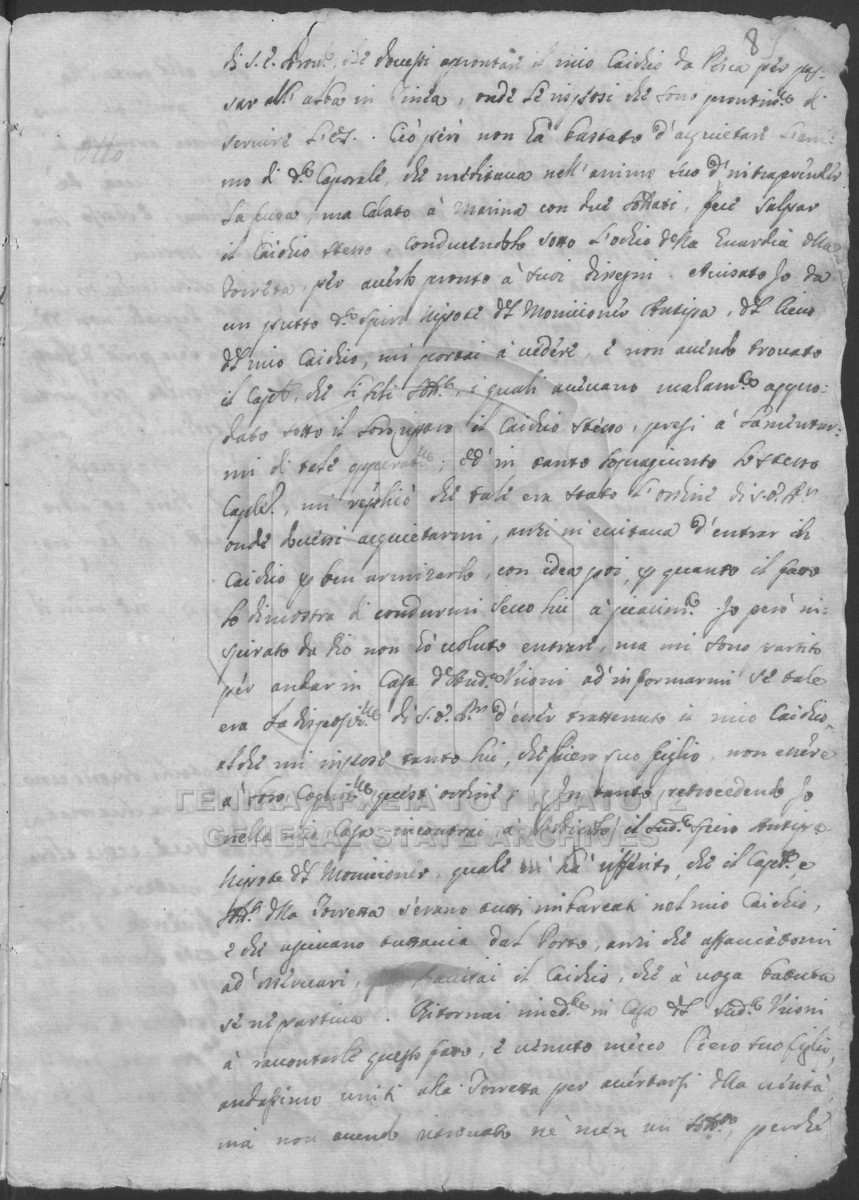 8
di S. E. Prov.r, che dovessi aprontare il mio Caichio da Pesca per pas-
sar all'alba in Tinea, onde le risposi che sono prontiss.mo di
servire S. E. Ciò però non hà bastato d'acquietare l'ani-
mo di d.o Caporale, che meditava nell'animo suo d'intraprender
la fuga, ma calato à marina con due soldati, fece salpar
il Caichio stesso, conducendolo sotto l'ochio della Guardia della
Torretta, per averlo pronto à suoi disegni. Avisato Io da
un putto d.o Spiro Nipote del Monicioner Antipa, del
del mio Caichio, mi portai à vedere, e non avendo trovato
il Cap.l, che li soli sold.ti, i quali avevano malam.te appro-
dato sotto il il Caichio stesso, presi à lamentar-
mi di tale operat.ne; ed in tanto sopragiunto lo stesso
Capl.e, mi replicò che tale era stato l'ordine di S. E. Pr.
onde dovessi acquietarmi, anzi m'eccitava d'entrar in
Caichio p ben armizarlo, con idea poi, p quanto il fatto
lo dimostra di condurmi seco lui à Io però in-
spirato da Dio non hò voluto entrare, ma mi sono partito
per andar in Casa del sud.o Vuoni ad informarmi se tale
era la disposiz.ne di S. E. Pr. d'esser trattenuto il mio Caichio,
al che mi rispose tanto lui, che Piero suo figlio, non essere
à loro Cogniz.ne quest'ordine; In tanto retrocedendo Io
nella mia Casa incontrai à il sud.o Spiro Antipa
Nipote del Monicioner, quale m'hà riferito, che il Cap.le, e
sold.ti della Torretta s'erano tutti imbarcati nel mio Caichio,
e che uscivano tuttavia dal Porto, anzi che affacciatomi
ad osservare, il Caichio, che à voga battuta
se ne partiva. Ritornai imed.te in Casa del sud.o Vuoni
à racontarle questo fatto, e venuto mecco Piero suo figlio,
andassimo uniti alla Torretta per acertarsi della verità,
mà non avendo ritrovato nè men un sold.to, perchè
ΓΕΝΙΚΑ ΑΡΧΕΙΑ ΤΟΥ ΚΡΑΤΟΥΣ
GENERAL STATE ARCHIVES